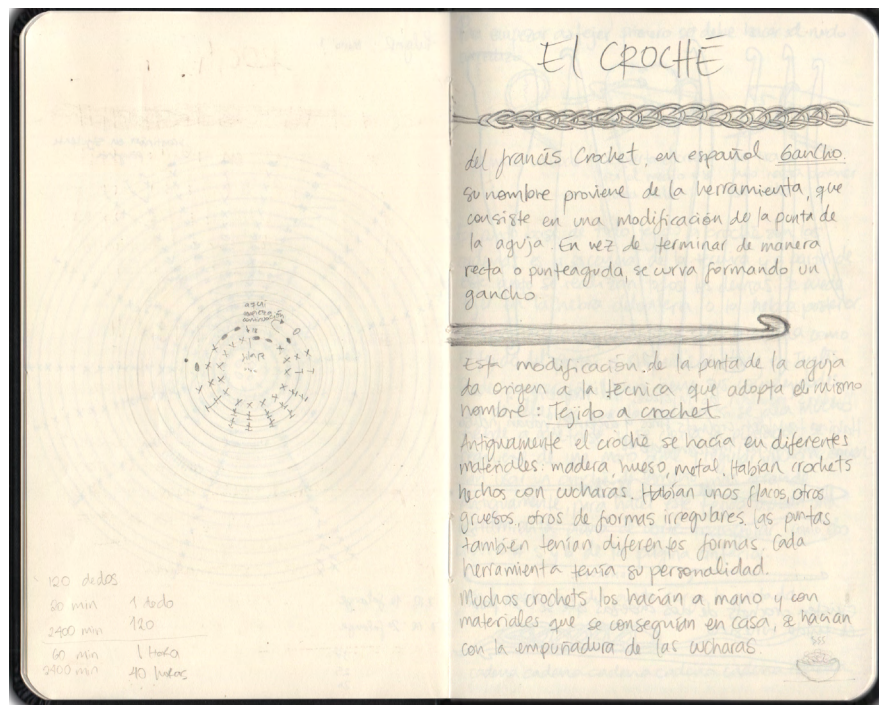 120 dedos
1 dedo
2400 min 120
60 min 1 Hora
2400 min 40 horas
El CROCHÉ
del francés Crochet, en español Gancho.
su nombre proviene de la herramienta, que
consiste en una modificación de la punta de
la aguja. En vez de terminar de manera
recta o punteaguda, se curva formando un
gancho
Esta modificación de la punta de la aguja
da origen a la técnica que adopta el mismo
nombre: Tejido a crochet
Antiguamente el croché se hacía en diferentes
materiales: madera, hueso, metal. Habían crochets
hechos con cucharas. Habían unos flacos, otros
gruesos, otros de formas irregulares. las puntas
tambien tenían diferentes formas. Cada
herramienta tenía su personalidad.
Muchos crochets los hacían a mano y con
materiales que se conseguían en casa, se hacían
con la empuñadura de las cucharas.